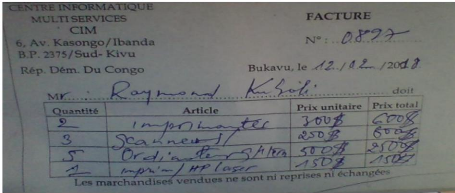 CENTRE INFORMATIQUE
MULTI SERVICES
CIM
6, Av. Kasongo/Ibanda
B.P. 2375/Sud- Kivu
Rép. Dém. Du Congo
FACTURE
N° : 0897
Bukavu, le 12/02/2018
Mr : Raymond doit
Quantité Article Prix unitaire Prix total
2 imprimantes 300$ 600$
3 Scanneurs 250$
5 Ordinateurs 500$ 2500$
1 imprim/HP laser 150$ 150$
Les marchandises vendues ne sont ni reprises ni échangées